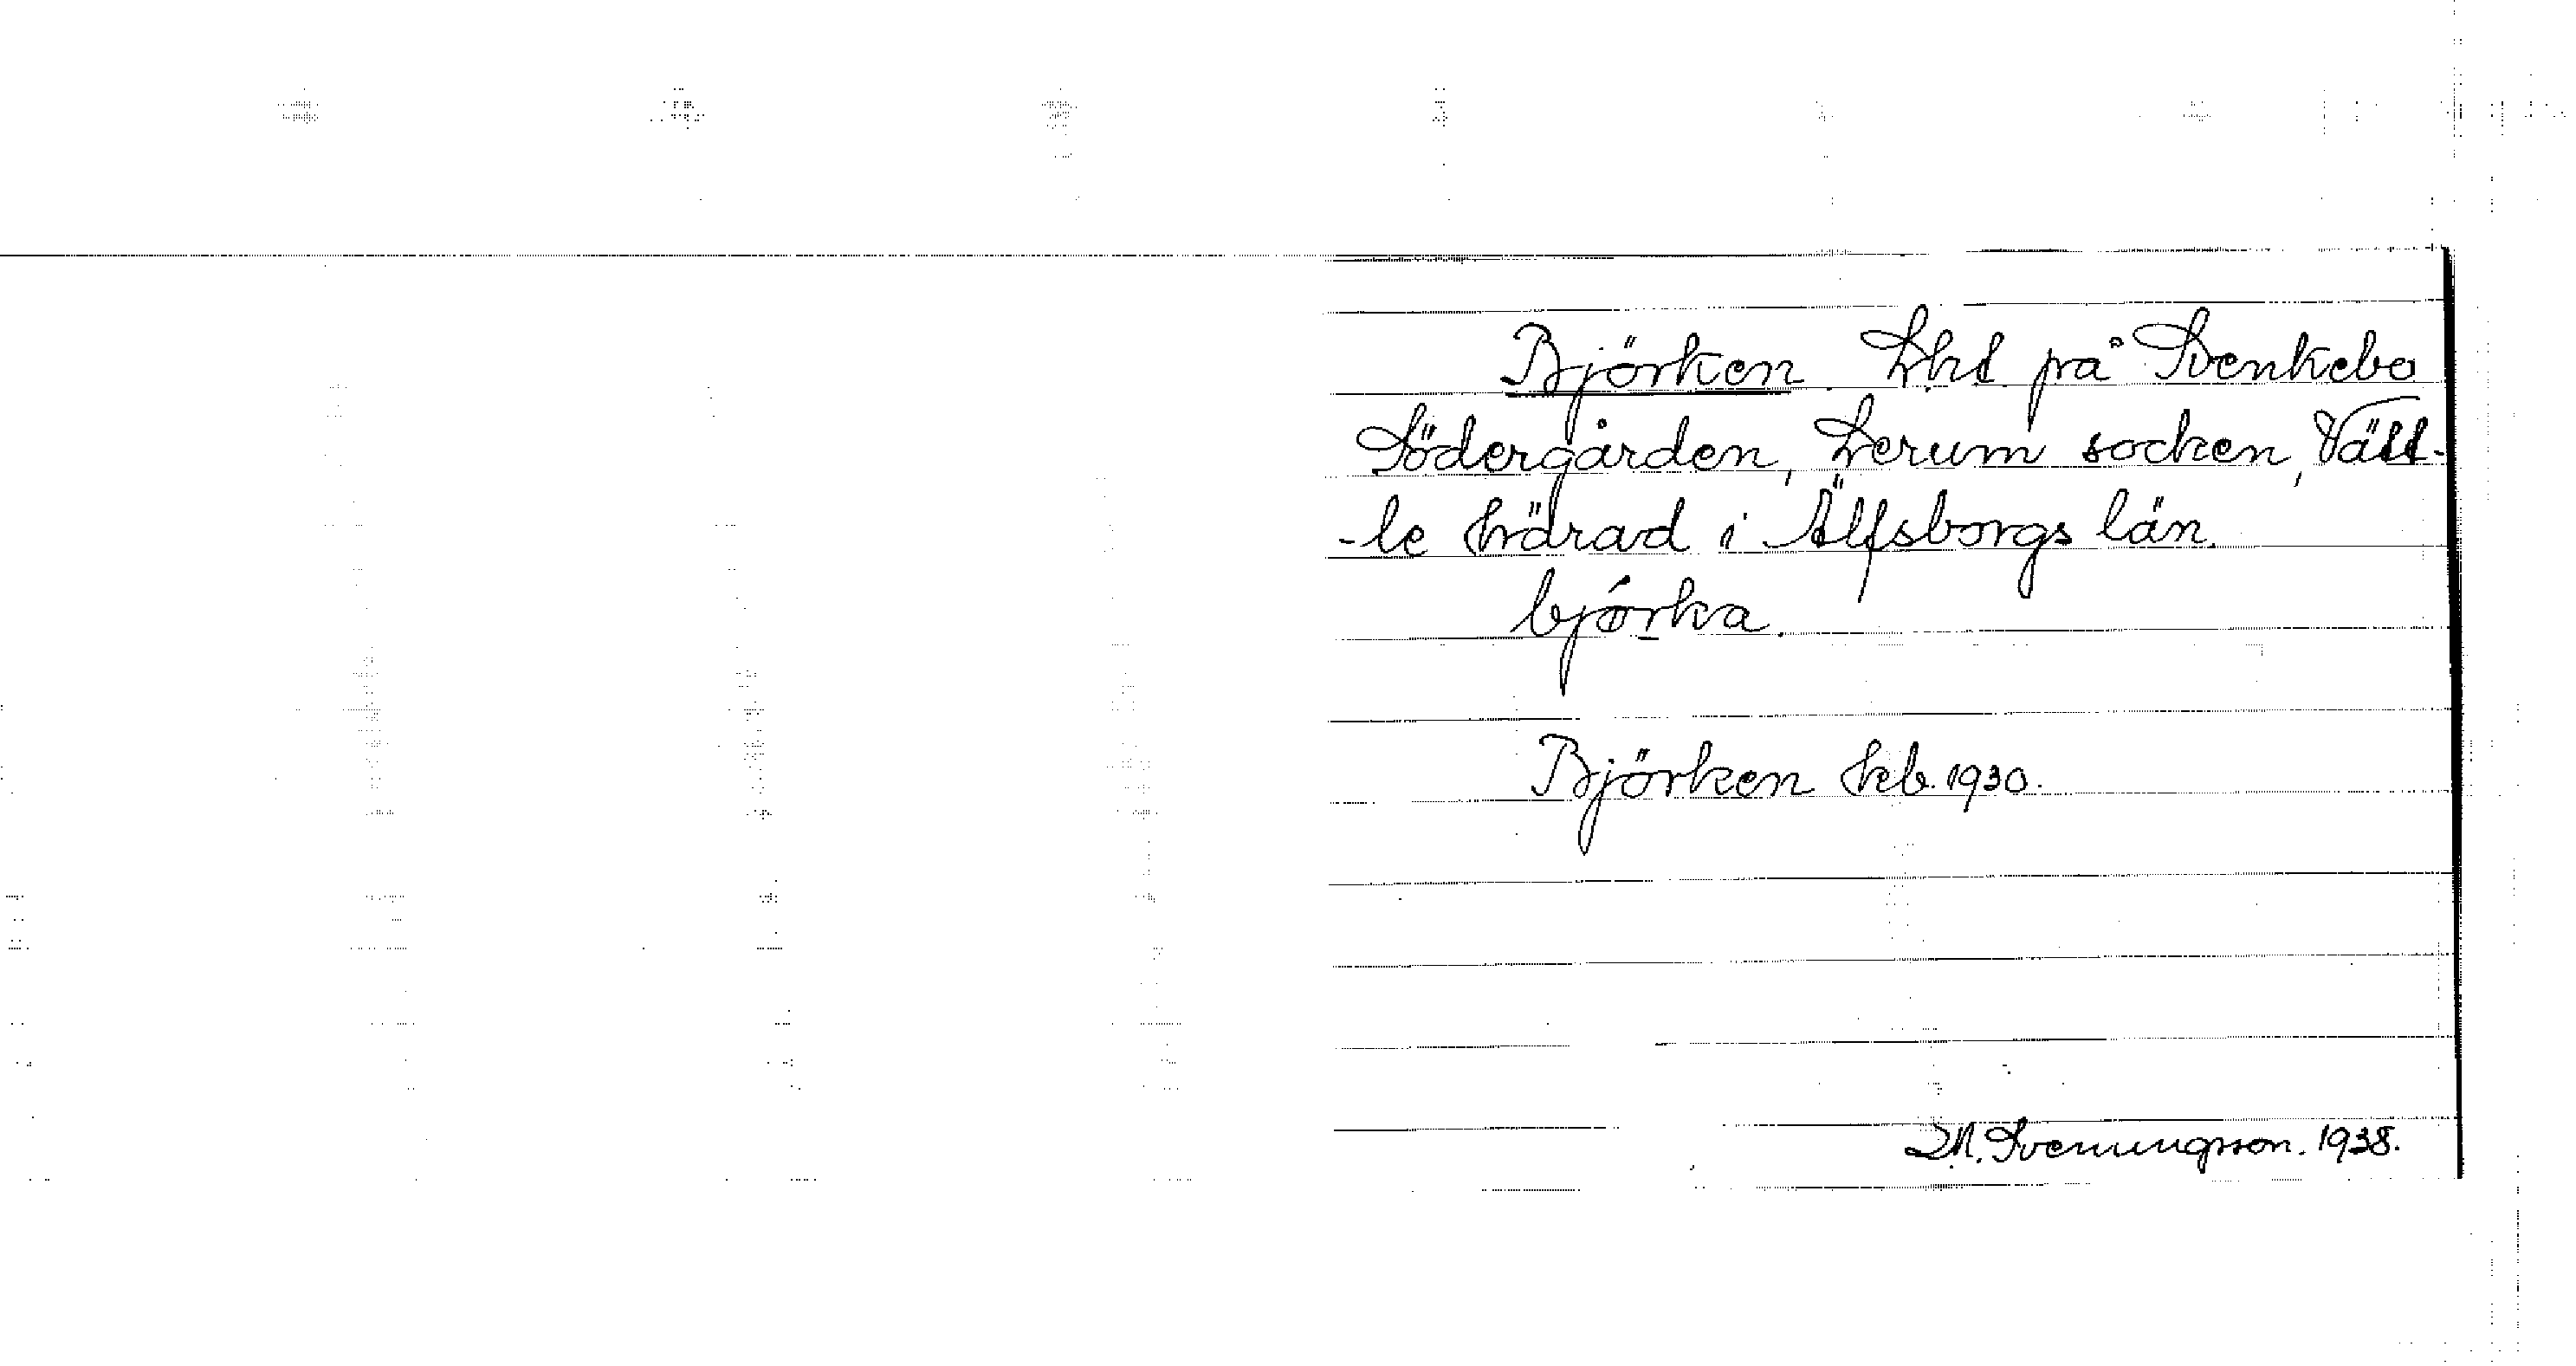 Björken. Lht på Svenkebo
Södergården, Lerum socken, Vätt-
-le härad i Älfsborgs län.
bjórka.
Björken hb. 1930.
Svenungsson. 1938.